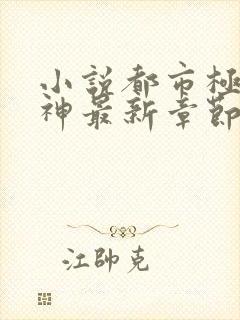 小説都市極
神最新章節
江帥克